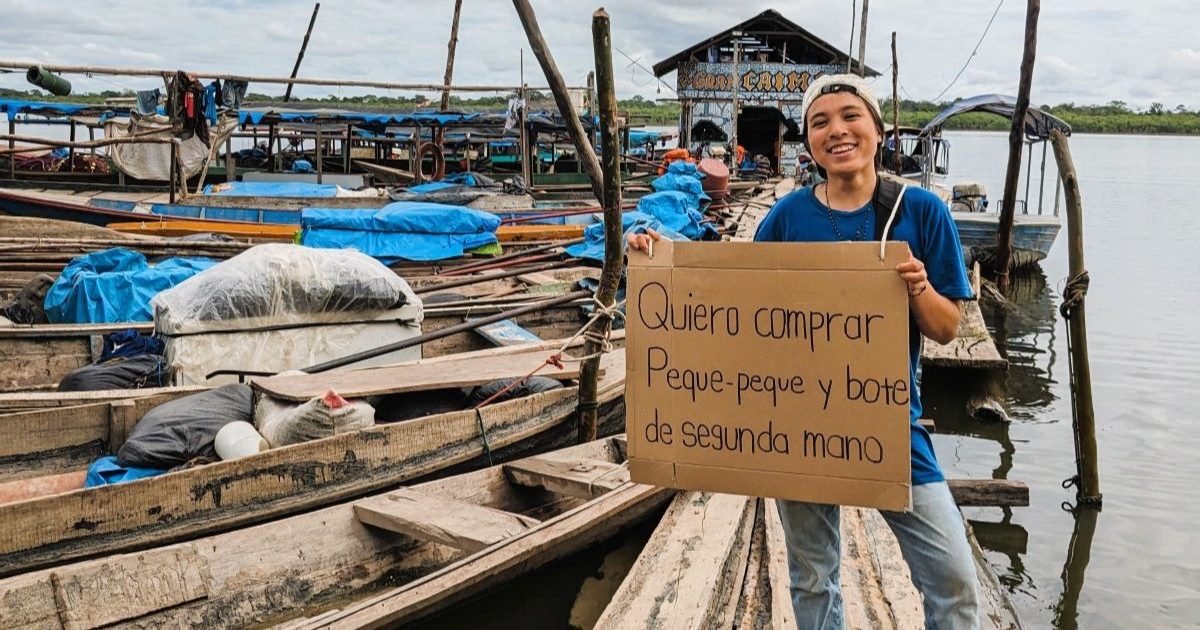 GRAN CAIMAN
Quiero comprar
Peque-peque y bote
de segunda mano